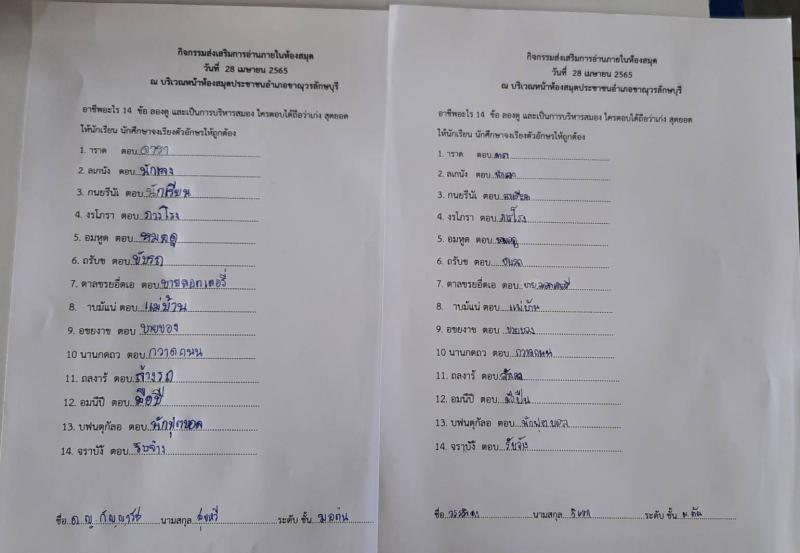 กิจกรรมส่งเสริมการอ่านภายในห้องสมุด
วันที่ 28 เมษายน 2565
ณ บริเวณหน้าห้องสมุดประชาชนอำเภอขาณุวรลักษบุรี
อาชีพอะไร 14 ข้อ ลองดู และเป็นการบริหารสมอง ใครตอบได้ถือว่าเก่ง สุดยอด
ให้นักเรียน นักศึกษาจงเรียงตัวอักษรให้ถูกต้อง
1. าราด ตอบ ดารา
2. ลเกนัง ตอบ นักเลง
3. กนยรีนัเ ตอบ นักเรียน
4. งรโภรา ตอบ ภารโรง
5. อมหูด ตอบ หมอดู
6. ถรับข ตอบ ขับรถ
7. ตาลขรยอี่ตเอ ตอบ ขายลอตเตอรี่
8. าบม้แน่ ตอบ แม่บ้าน
9. อขยงาข ตอบ ขายของ
10 นานกดถว ตอบ กวาดถนน
11. ถลงาร้ ตอบ ล้างรถ
12. อมนืปี ตอบ มือปื
13. บฟนตุกัลอ ตอบ นักฟุตบอล
14. จราบังี ตอบ รับจ้าง
ชื่อ ด.ญ. นามสกุล ระดับ ชั้น ม.ต้น
กิจกรรมส่งเสริมการอ่านภายในห้องสมุด
วันที่ 28 เมษายน 2565
ณ บริเวณหน้าห้องสมุดประชาชนอำเภอขาณุวรลักษบุรี
อาชีพอะไร 14 ข้อ ลองดู และเป็นการบริหารสมอง ใครตอบได้ถือว่าเก่ง สุดยอด
ให้นักเรียน นักศึกษาจงเรียงตัวอักษรให้ถูกต้อง
1. าราด ตอบ ดารา
2. ลเกนัง ตอบ
3. กนยรีนัเ ตอบ
4. งรโภรา ตอบ ภารโรง
5. อมหูด ตอบ หมอดู
6. ถรับข ตอบ ขับรถ
7. ตาลขรยอี่ตเอ ตอบ ขายลอตเตอรี่
8. าบม้แน่ ตอบ แม่บ้าน
9. อขยงาข ตอบ ขายของ
10 นานกดถว ตอบ กวาดถนน
11. ถลงาร้ ตอบ
12. อมนืปี ตอบ มือปืน
13. บฟนตุกัลอ ตอบ นักฟุตบอล
14. จราบังี ตอบ รับจ้าง
ชื่อ นามสกุล ระดับ ชั้น ม.ต้น